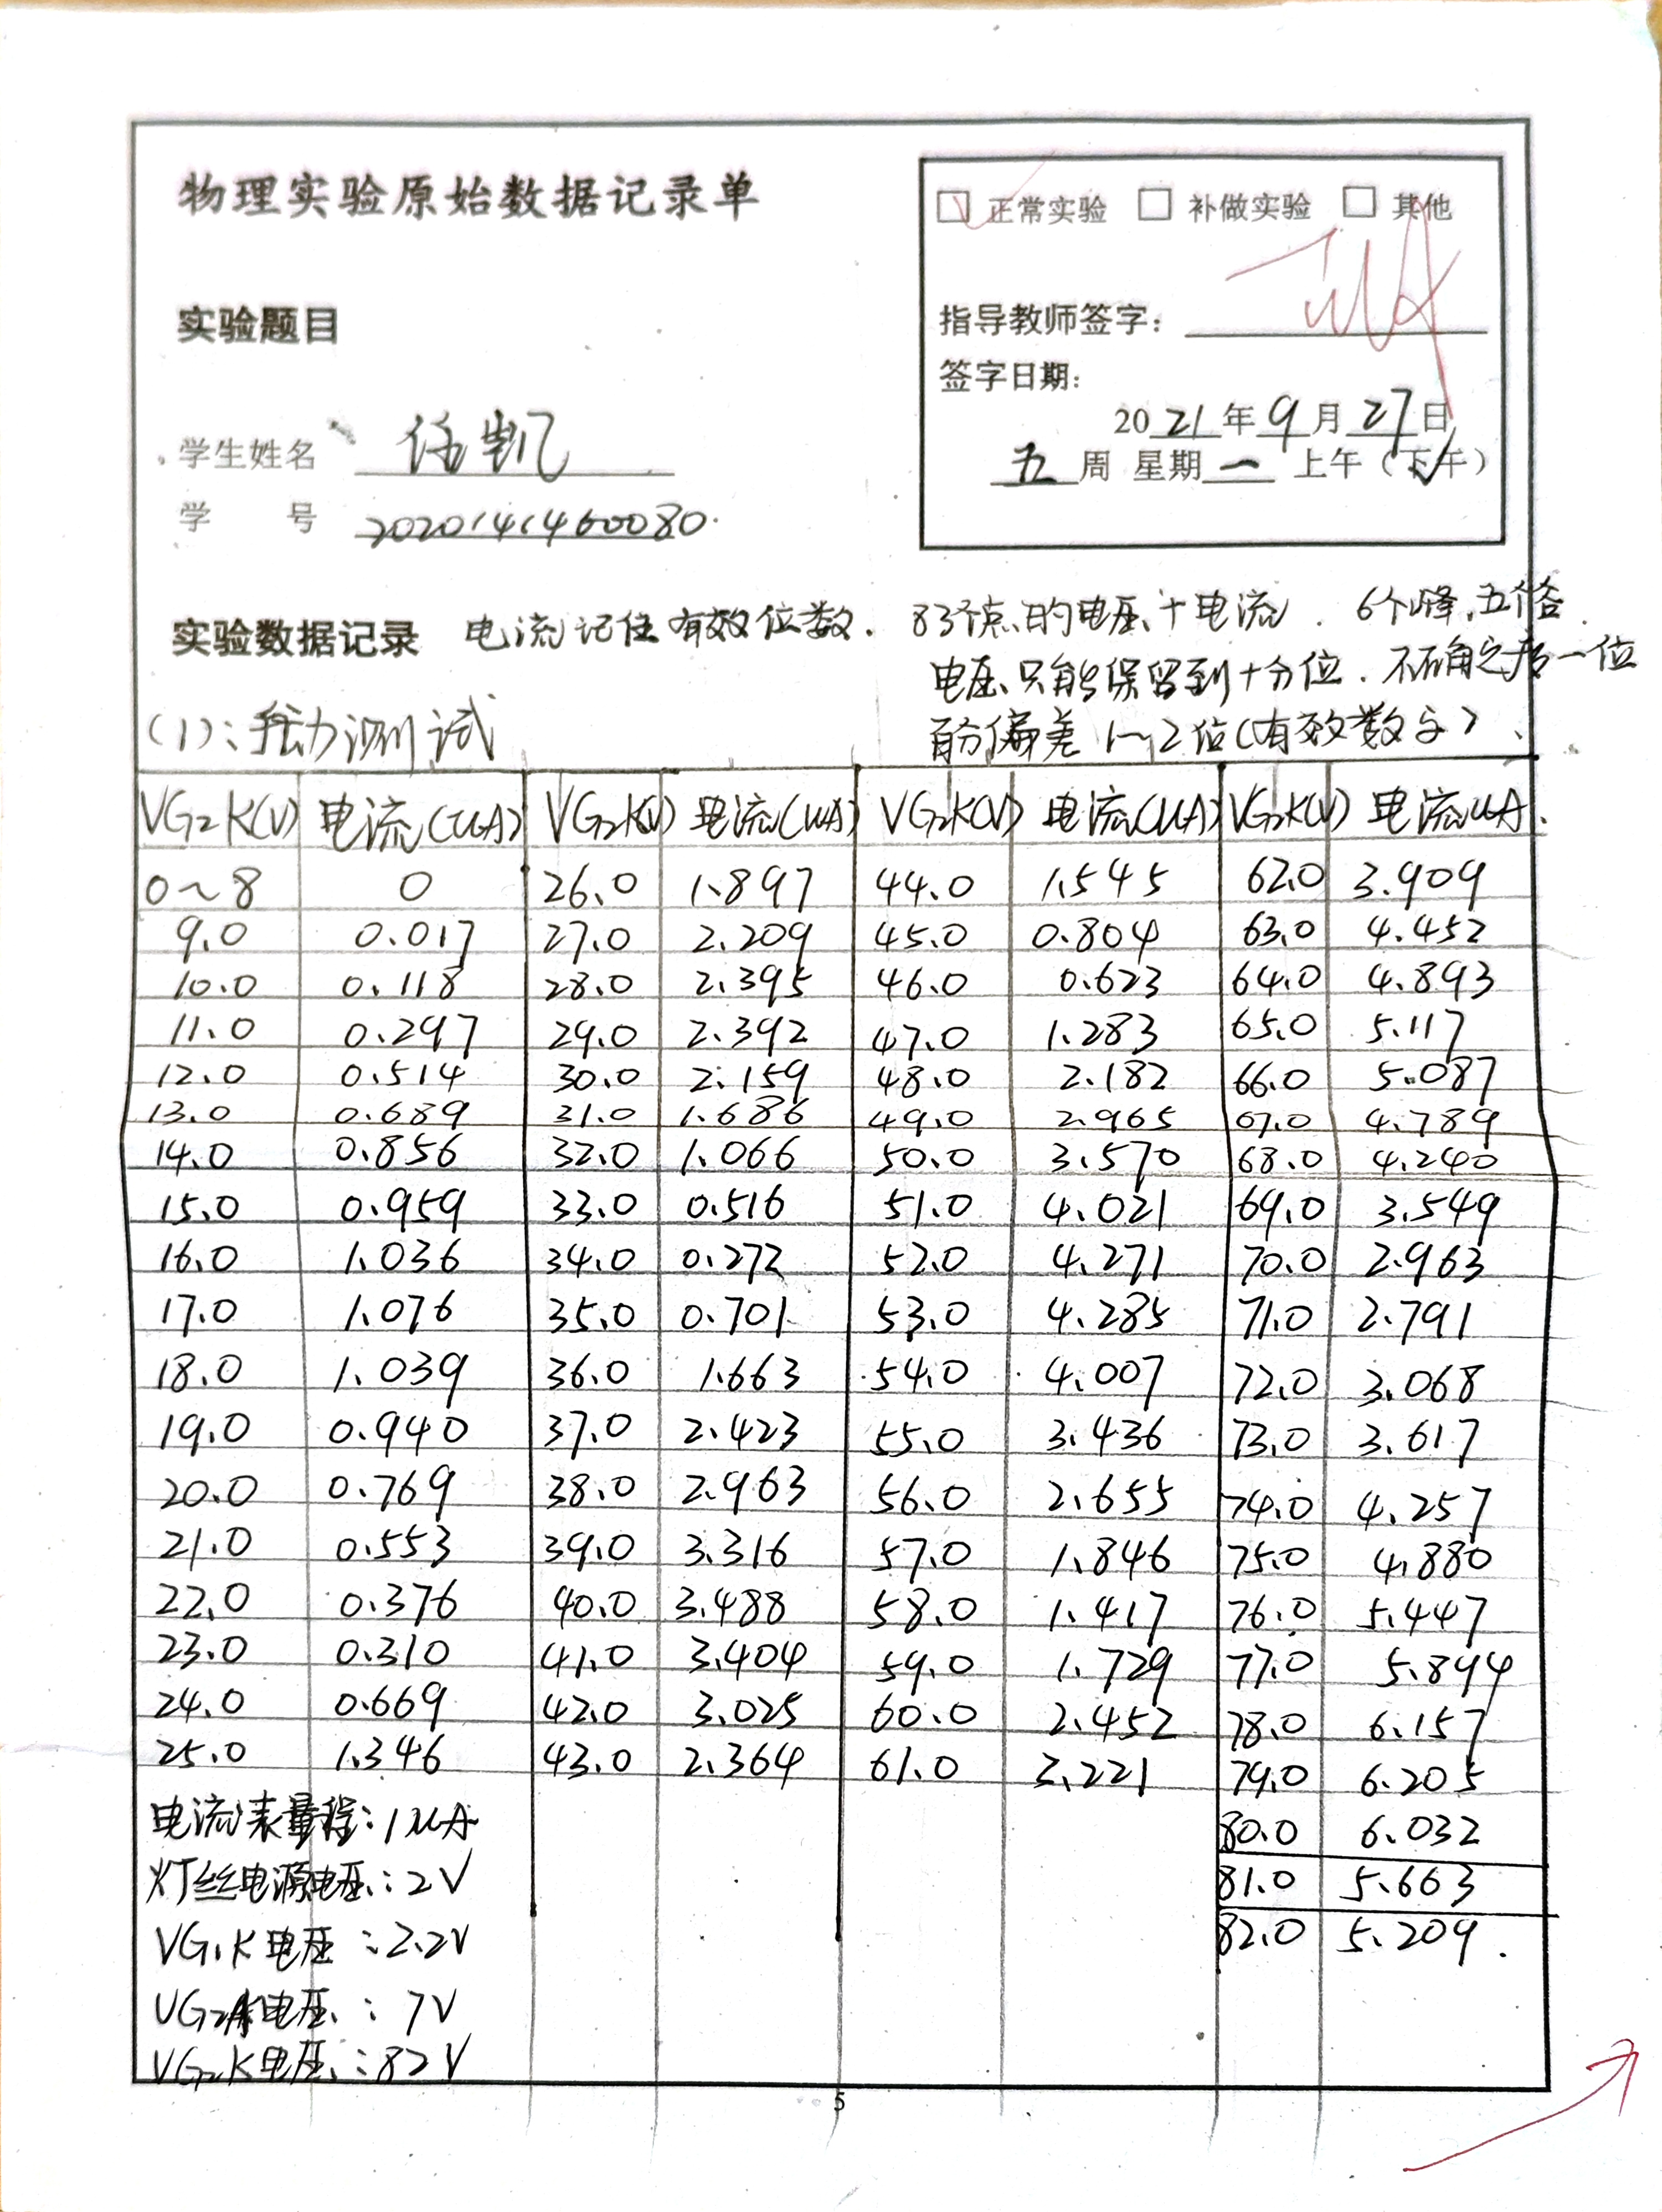 物理实验原始数据记录单
正常实验 补做实验 其他
实验题目
指导教师签字：
签字日期：
2021年9月27日
五周 星期一 上午（下午）
学生姓名 任凯
学 号 2020141460080.
实验数据记录 电流记住有效位数. 83个点的电压+电流. 6个峰,五个谷.
电压只能保留到十分位. 不确定后一位
百分偏差1～2位(有效数字)、
(1): 手动测试
VG₂K(V) 电流(uA) VG₂K(V) 电流(uA) VG₂K(V) 电流(uA) VG₂K(V) 电流uA.
0～8 0 26.0 1.897 44.0 1.545 62.0 3.909
9.0 0.017 27.0 2.209 45.0 0.804 63.0 4.452
10.0 0.118 28.0 2.395 46.0 0.623 64.0 4.893
11.0 0.297 29.0 2.392 47.0 1.283 65.0 5.117
12.0 0.514 30.0 2.159 48.0 2.182 66.0 5.087
13.0 0.689 31.0 1.686 49.0 2.965 67.0 4.789
14.0 0.856 32.0 1.066 50.0 3.570 68.0 4.240
15.0 0.959 33.0 0.516 51.0 4.021 69.0 3.549
16.0 1.036 34.0 0.272 52.0 4.271 70.0 2.963
17.0 1.076 35.0 0.701 53.0 4.285 71.0 2.791
18.0 1.039 36.0 1.663 54.0 4.007 72.0 3.068
19.0 0.940 37.0 2.423 55.0 3.436 73.0 3.617
20.0 0.769 38.0 2.963 56.0 2.655 74.0 4.257
21.0 0.553 39.0 3.316 57.0 1.846 75.0 4.880
22.0 0.376 40.0 3.488 58.0 1.417 76.0 5.447
23.0 0.310 41.0 3.404 59.0 1.729 77.0 5.894
24.0 0.669 42.0 3.025 60.0 2.452 78.0 6.157
25.0 1.346 43.0 2.364 61.0 3.221 79.0 6.205
80.0 6.032
81.0 5.663
82.0 5.209.
电流表量程: 1uA
灯丝电源电压: 2V
VG₁K电压: 2.2V
VG₂A电压: 7V
VG₂K电压: 82V
5